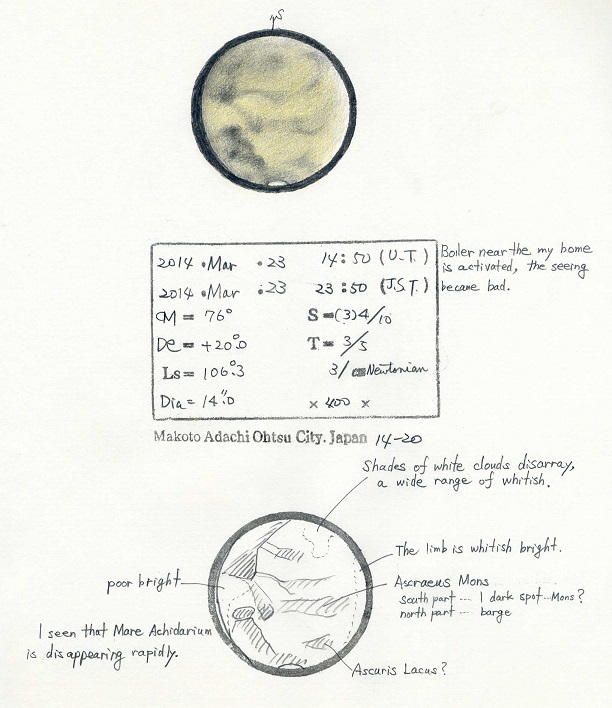 S
2014 • Mar • 23 14:50 (U.T.)
2014 • Mar : 23 23:50 (J.S.T.)
Boiler near the my home
is activated, the seeing
became bad.
CM = 76°
S = (3)4/10
De = +20°.0
T = 3/5
Ls = 106°.3
31/ cm Newtonian
Dia = 14".0
× 400 ×
Makoto Adachi Ohtsu City. Japan 14-20
Shades of white clouds disarray,
a wide range of whitish.
The limb is whitish bright.
poor bright
Ascraeus Mons
south part --- 1 dark spot...Mons?
north part --- barge
I seen that Mare Achidarium
is disappearing rapidly.
Ascuris Lacus?